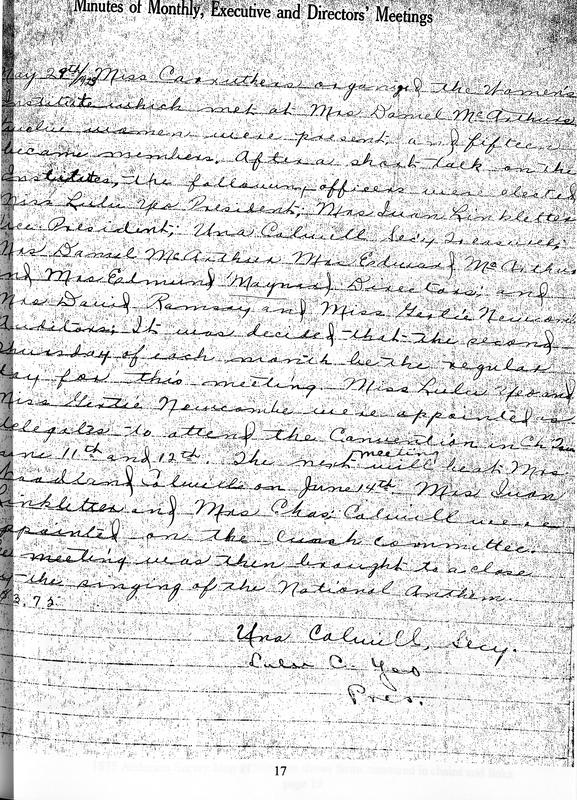 Minutes of Monthly, Executive and Directors' Meetings
May 29th/1923 Miss Carruthers organized the Women's
Institute which met at Mrs Daniel McArthurs
twelve women were present, and fifteen
became members. After a short talk on the
Institutes, the following officers were elected
Miss Lulu Yeo President; Mrs Ivan Linkletter
Vice President; Una Colwill Secy Treasurer;
Mrs Daniel McArthur Mrs Edward McArthur
and Mrs Edmund Maynard Directors; and
Mrs David Ramsay and Miss Gertie Newcombe
Auditors; It was decided that the second
Thursday of each month be the regular
day for this meeting. Miss Lulu Yeo and
Miss Gertie Newcombe were appointed as
delegates to attend the Convention in Ch. Town
June 11th and 12th. The next meeting will be at Mrs
Colwill on June 14th. Mrs Ivan
Linkletter and Mrs Chas. Colwill were
appointed on the committee.
The meeting was then brought to a close
by the singing of the National Anthem.
$3.75
Una Colwill, Secy.
C. Yeo
Pres.
17